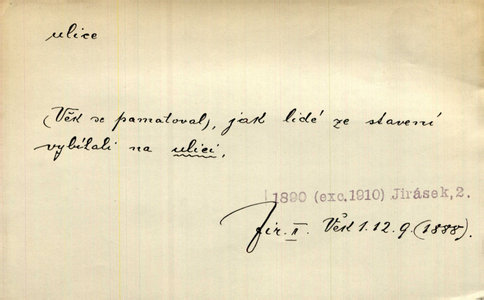 ulice
(Věk se pamatoval), jak lidé ze stavení
vybíhali na ulici,
1890 (exc.1910) Jirásek,2.
Jir. II. Věk 1.12.9.(1888).